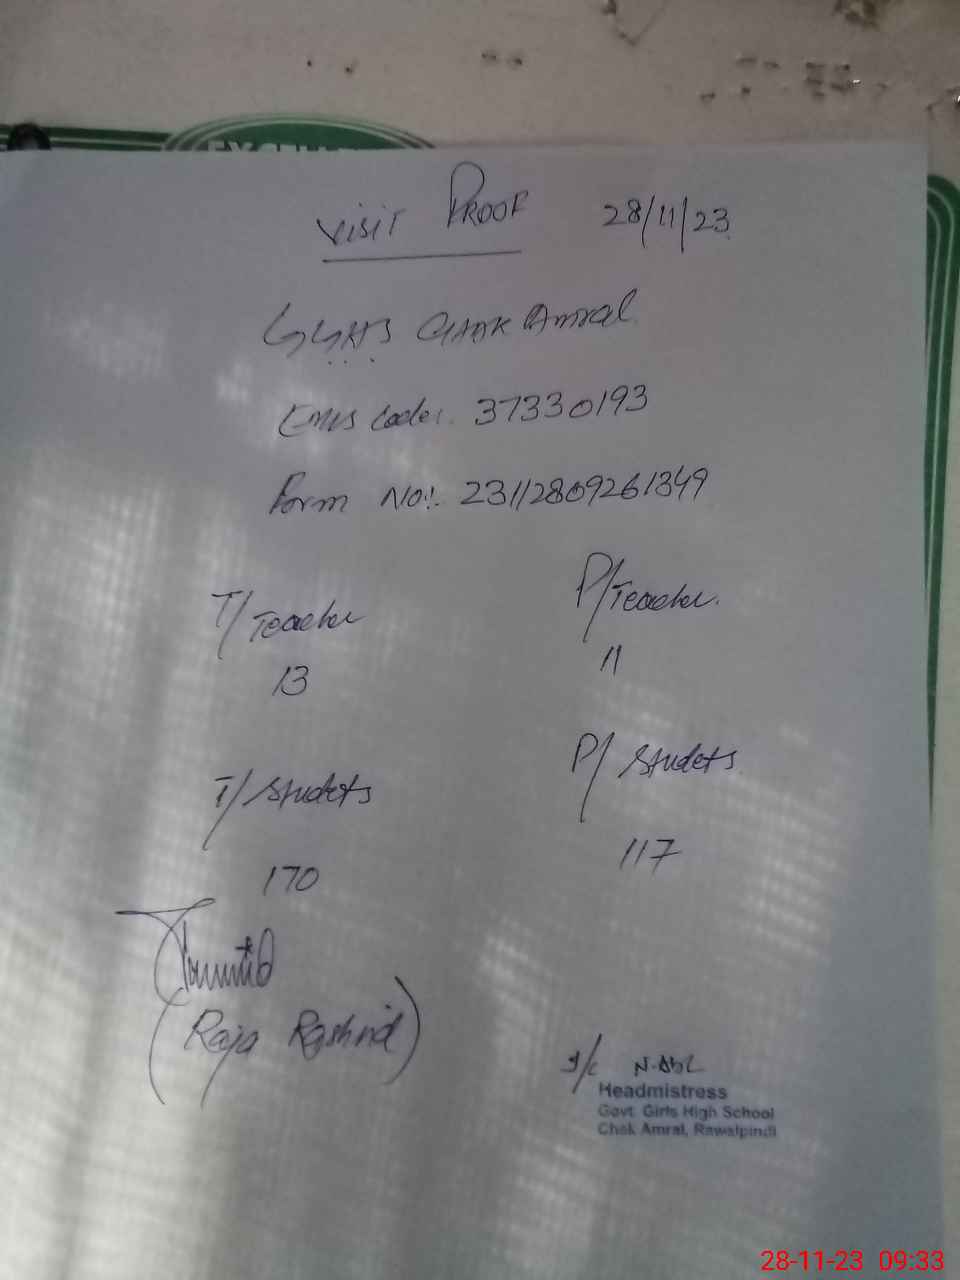 Visit Proof 28/11/23
GGHS Chak Amral
Emis Code:. 37330193
Form No:. 23112809261349
T/Teacher P/Teacher.
13 11
T/Studets P/Studets
170 117
(Raja Rashid)
I/C
Headmistress
Govt. Girls High School
Chak Amral, Rawalpindi
28-11-23 09:33